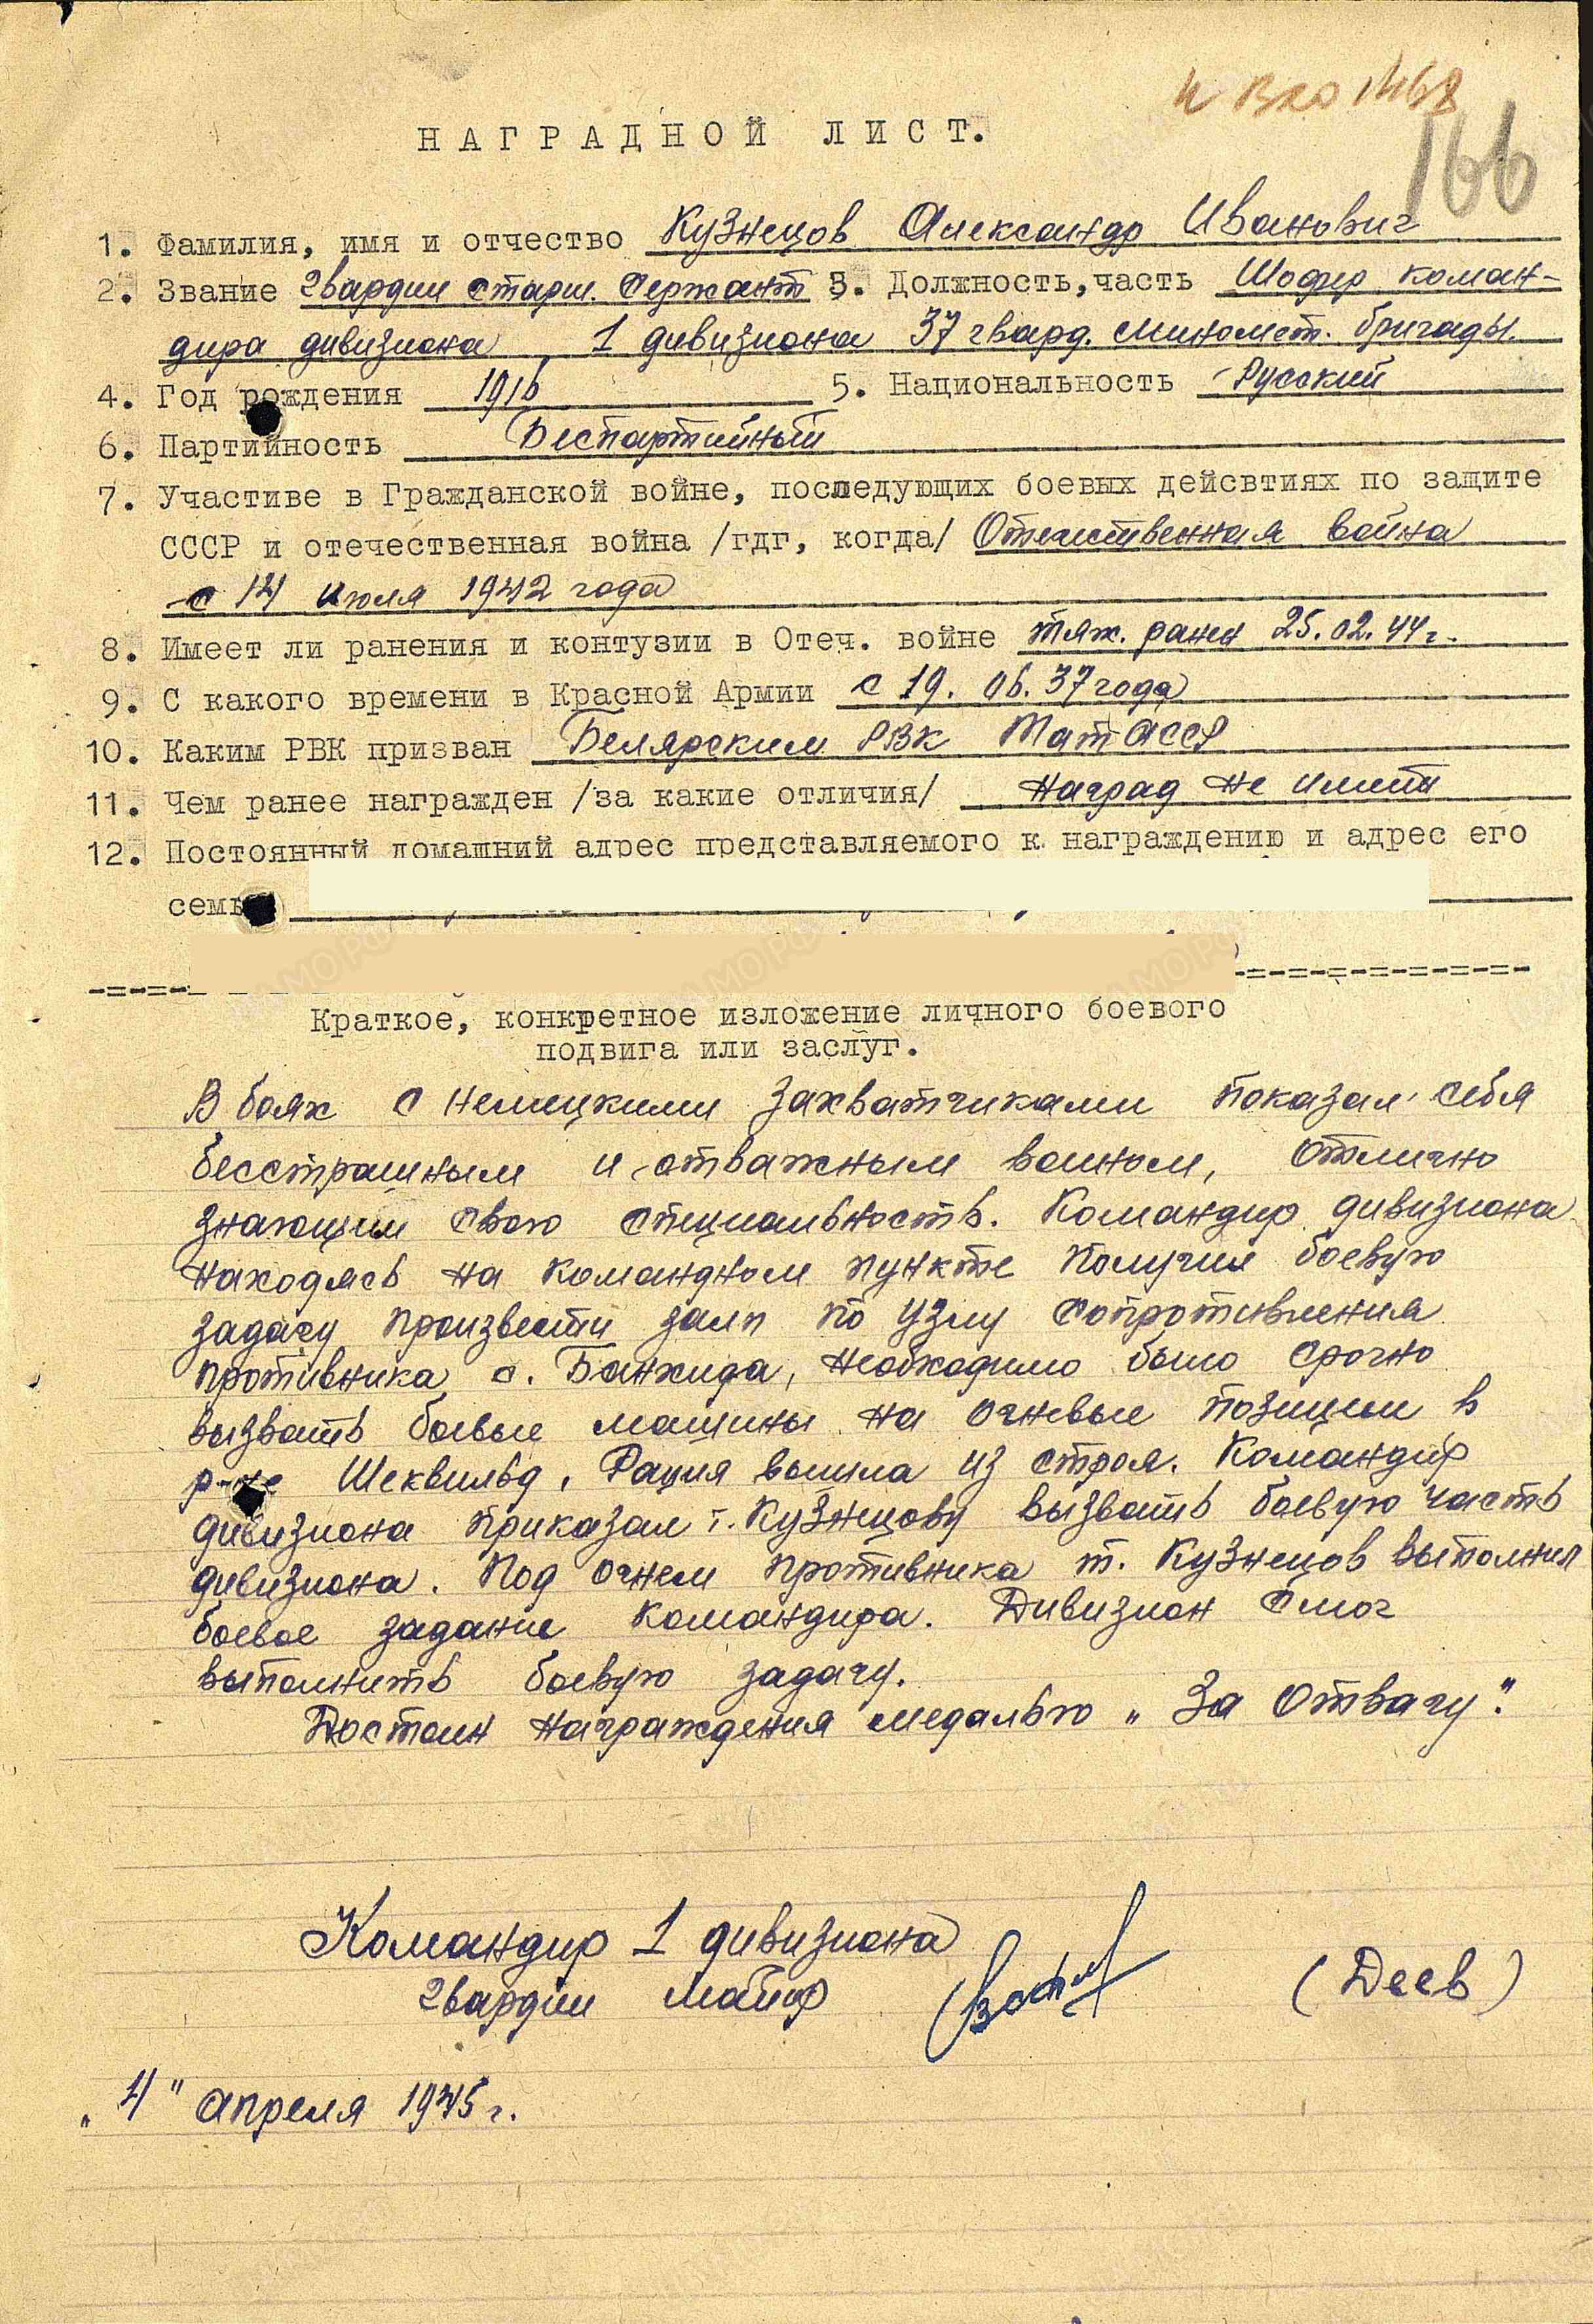 к вхо 1468
166
НАГРАДНОЙ ЛИСТ.
1. Фамилия, имя и отчество Кузнецов Александр Иванович
2. Звание гвардии старш. сержант 3. Должность, часть Шофер коман-
дира дивизиона 1 дивизиона 37 гвард. миномет. бригады.
4. Год рождения 1916 5. Национальность Русский
6. Партийность Беспартийный
7. Участиве в Гражданской войне, последующих боевых дейсвтиях по защите
СССР и отечественная война /гдг, когда/ Отечественная война
с 14 июля 1942 года
8. Имеет ли ранения и контузии в Отеч. войне тяж. ранен 25.02.44 г.
9. С какого времени в Красной Армии с 19.06.37 года
10. Каким РВК призван Белярским РВК ТатАССР
11. Чем ранее награжден /за какие отличия/ Наград не имеет
12. Постоянный домашний адрес представляемого к награждению и адрес его
семьи
Краткое, конкретное изложение личного боевого
подвига или заслуг.
В боях с немецкими захватчиками показал себя
бесстрашным и отважным воином, отлично
знающим свою специальность. Командир дивизиона
находясь на командном пункте получил боевую
задачу произвести залп по узлу сопротивления
противника с. Банхида, необходимо было срочно
вызвать боевые машины на огневые позиции в
р-не Шеквильд. Рация вышла из строя. Командир
дивизиона приказал т. Кузнецову вызвать боевую часть
дивизиона. Под огнем противника т. Кузнецов выполнил
боевое задание командира. Дивизион смог
выполнить боевую задачу.
Достоин награждения медалью „За Отвагу".
Командир 1 дивизиона
гвардии майор (Деев)
„4" апреля 1945 г.